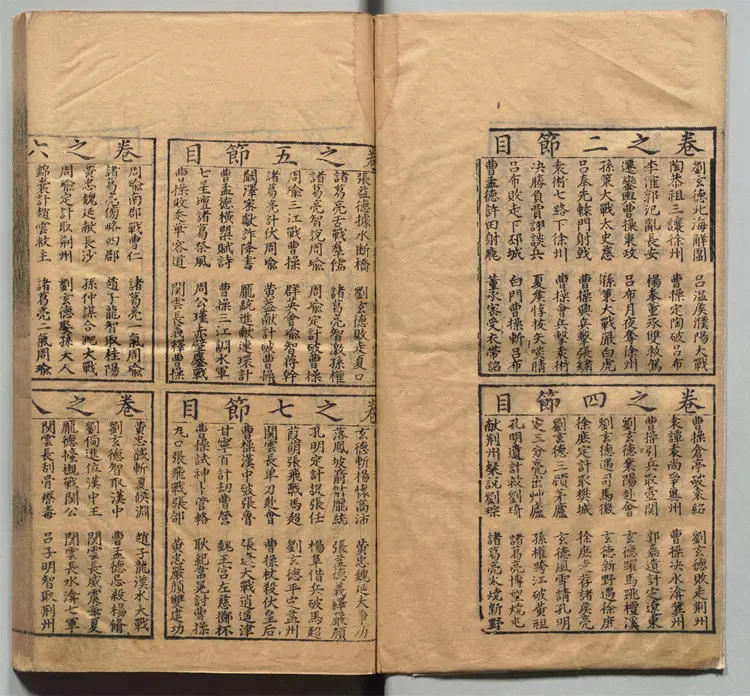 卷之二節目
劉玄德北海解圍 呂溫侯濮陽大戰
陶恭祖三讓徐州 曹操定陶破呂布
李傕郭汜亂長安 楊奉董承雙救駕
遷鑾輿曹操秉政 呂布月夜奪徐州
孫策大戰太史慈 孫策大戰嚴白虎
呂奉先轅門射戟 曹操興兵擊張繡
袁術七路下徐州 曹操會兵擊袁術
決勝負賈詡談兵 夏侯惇拔矢啖睛
呂布敗走下邳城 白門曹操斬呂布
曹孟德許田射鹿 董承密受衣帶詔
卷之四節目
曹操倉亭破袁紹 劉玄德敗走荊州
袁譚袁尚爭冀州 曹操決水渰冀州
曹操引兵取壺関 郭嘉遺計定遼東
劉玄德襄陽赴會 玄德躍馬跳檀溪
劉玄德遇司馬徽 玄德新野遇徐庶
徐庶定計取樊城 徐庶走荐諸葛亮
劉玄德三顧茅廬 玄德風雪請孔明
定三分亮出艸廬 孫權跨江破黃祖
孔明遺計救劉琦 諸葛亮博望燒屯
献荊州粲說劉琮 諸葛亮火燒新野
卷之五節目
張益德據水断橋 劉玄德敗走夏口
諸葛亮舌戰羣儒 諸葛亮智激孫權
諸葛亮智說周瑜 周瑜定計破曹操
周瑜三江戰曹操 群英會瑜智蔣幹
諸葛亮計伏周瑜 黃盖献計破曹操
闞澤宻献詐降書 龐統進献連環計
曹孟德橫槊賦詩 曹操三江調水軍
七星壇諸葛祭風 周公瑾赤壁鏖戰
曹操敗走華容道 関雲長義釋曹操
卷之六
周瑜南郡戰曹仁 諸葛亮一氣周瑜
諸葛亮傍略四郡 趙子龍智取桂陽
黃忠魏延献長沙 孫仲謀合淝大戰
周瑜定計取荊州 劉玄德娶孫夫人
錦囊計趙雲救主 諸葛亮二氣周瑜
卷之七節目
玄德斬楊懷高沛 黃忠魏延大爭功
落鳳坡箭射龐統 張益德義釋嚴顏
孔明定計捉張任 楊阜借兵破馬超
葭萌張飛戰馬超 劉玄德平定益州
関雲長单刀赴會 曹操杖殺伏皇后
曹操漢中破張魯 張遼大戰逍遥津
甘寧百計劫曹營 魏王宫左慈擲杯
曹操試神卜管輅 耿紀韋晃討曹操
瓦口張飛戰張郃 黃忠嚴顏雙建功
卷之八
黃忠馘斬夏侯淵 趙子龍漢水大戰
劉玄德智取漢中 曹孟德忌殺楊脩
劉備進位漢中王 関雲長威震華夏
龐德擡櫬戰関公 関雲長水渰七軍
関雲長刮骨療毒 呂子明智取荊州